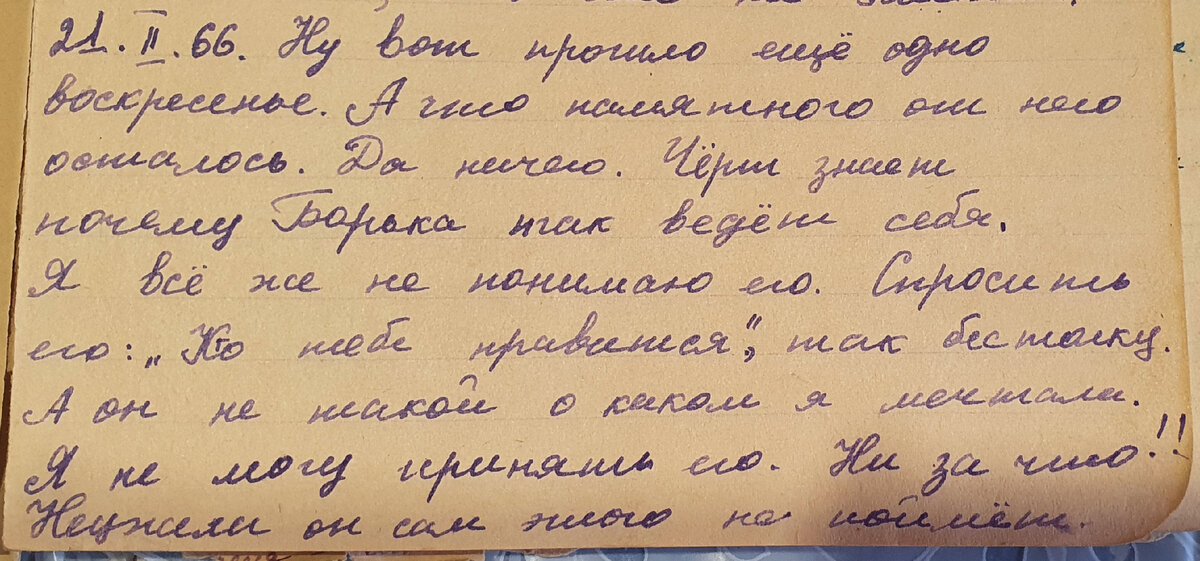 21.II.66. Ну вот прошло ещё одно
воскресенье. А что памятного от него
осталось. Да ничего. Чёрт знает
почему Борька так ведёт себя.
Я всё же не понимаю его. Спросить
его: „Кто тебе нравится", так бестолку.
А он не такой о каком я мечтала.
Я не могу принять его. Ни за что!!
Неужели он сам этого не поймёт.